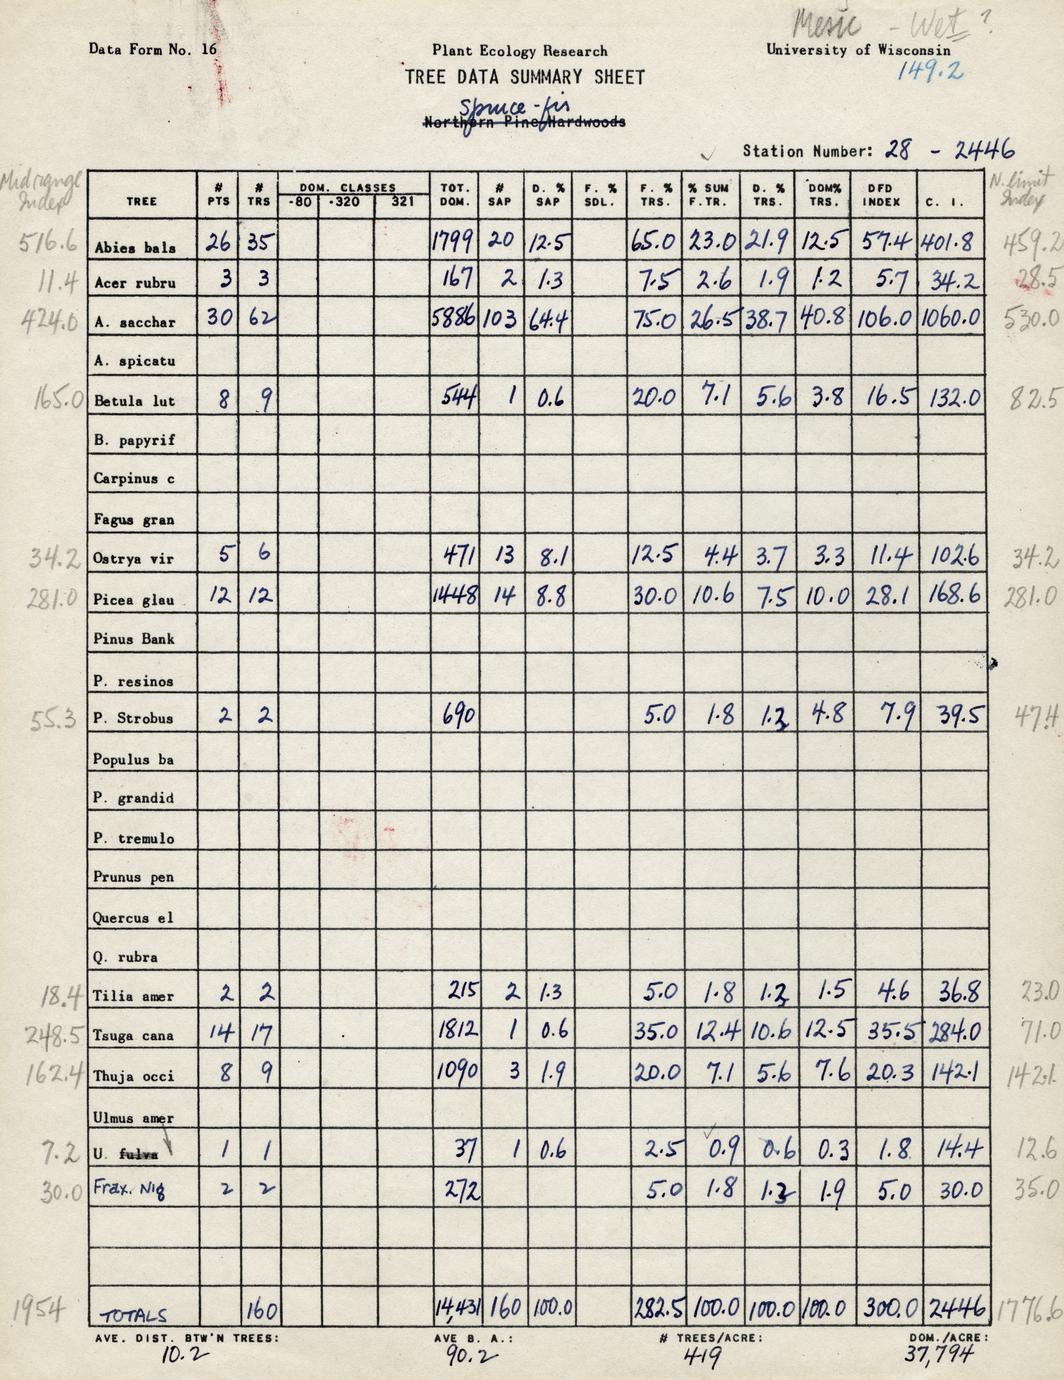 Mesic - Wet?
Data Form No. 16 Plant Ecology Research University of Wisconsin
149.2
TREE DATA SUMMARY SHEET
Spruce-fir
Northern Pine Hardwoods
✓ Station Number: 28 - 2446
Midrange Index TREE # PTS # TRS DOM. CLASSES -80 -320 321 TOT. DOM. # SAP D. % SAP F. % SDL. F. % TRS. % SUM F.TR. D. % TRS. DOM% TRS. DFD INDEX C. I. N. limit Index
516.6 Abies bals 26 35 1799 20 12.5 65.0 23.0 21.9 12.5 57.4 401.8 459.2
11.4 Acer rubru 3 3 167 2 1.3 7.5 2.6 1.9 1.2 5.7 34.2 28.5
424.0 A. sacchar 30 62 5886 103 64.4 75.0 26.5 38.7 40.8 106.0 1060.0 530.0
A. spicatu
165.0 Betula lut 8 9 544 1 0.6 20.0 7.1 5.6 3.8 16.5 132.0 82.5
B. papyrif
Carpinus c
Fagus gran
34.2 Ostrya vir 5 6 471 13 8.1 12.5 4.4 3.7 3.3 11.4 102.6 34.2
281.0 Picea glau 12 12 1448 14 8.8 30.0 10.6 7.5 10.0 28.1 168.6 281.0
Pinus Bank
P. resinos
55.3 P. Strobus 2 2 690 5.0 1.8 1.2 4.8 7.9 39.5 47.4
Populus ba
P. grandid
P. tremulo
Prunus pen
Quercus el
Q. rubra
18.4 Tilia amer 2 2 215 2 1.3 5.0 1.8 1.2 1.5 4.6 36.8 23.0
248.5 Tsuga cana 14 17 1812 1 0.6 35.0 12.4 10.6 12.5 35.5 284.0 71.0
162.4 Thuja occi 8 9 1090 3 1.9 20.0 7.1 5.6 7.6 20.3 142.1 142.1
Ulmus amer
7.2 U. fulva 1 1 37 1 0.6 2.5 0.9 0.6 0.3 1.8 14.4 12.6
30.0 Frax. Nig 2 2 272 5.0 1.8 1.2 1.9 5.0 30.0 35.0
1954 TOTALS 160 14,431 160 100.0 282.5 100.0 100.0 100.0 300.0 2446 1776.6
AVE. DIST. BTW'N TREES: AVE B. A.: # TREES/ACRE: DOM./ACRE:
10.2 90.2 419 37,794